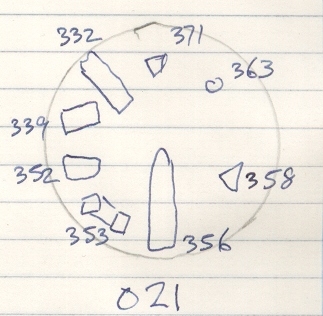 332 371
363
339
352
358
353
356
021